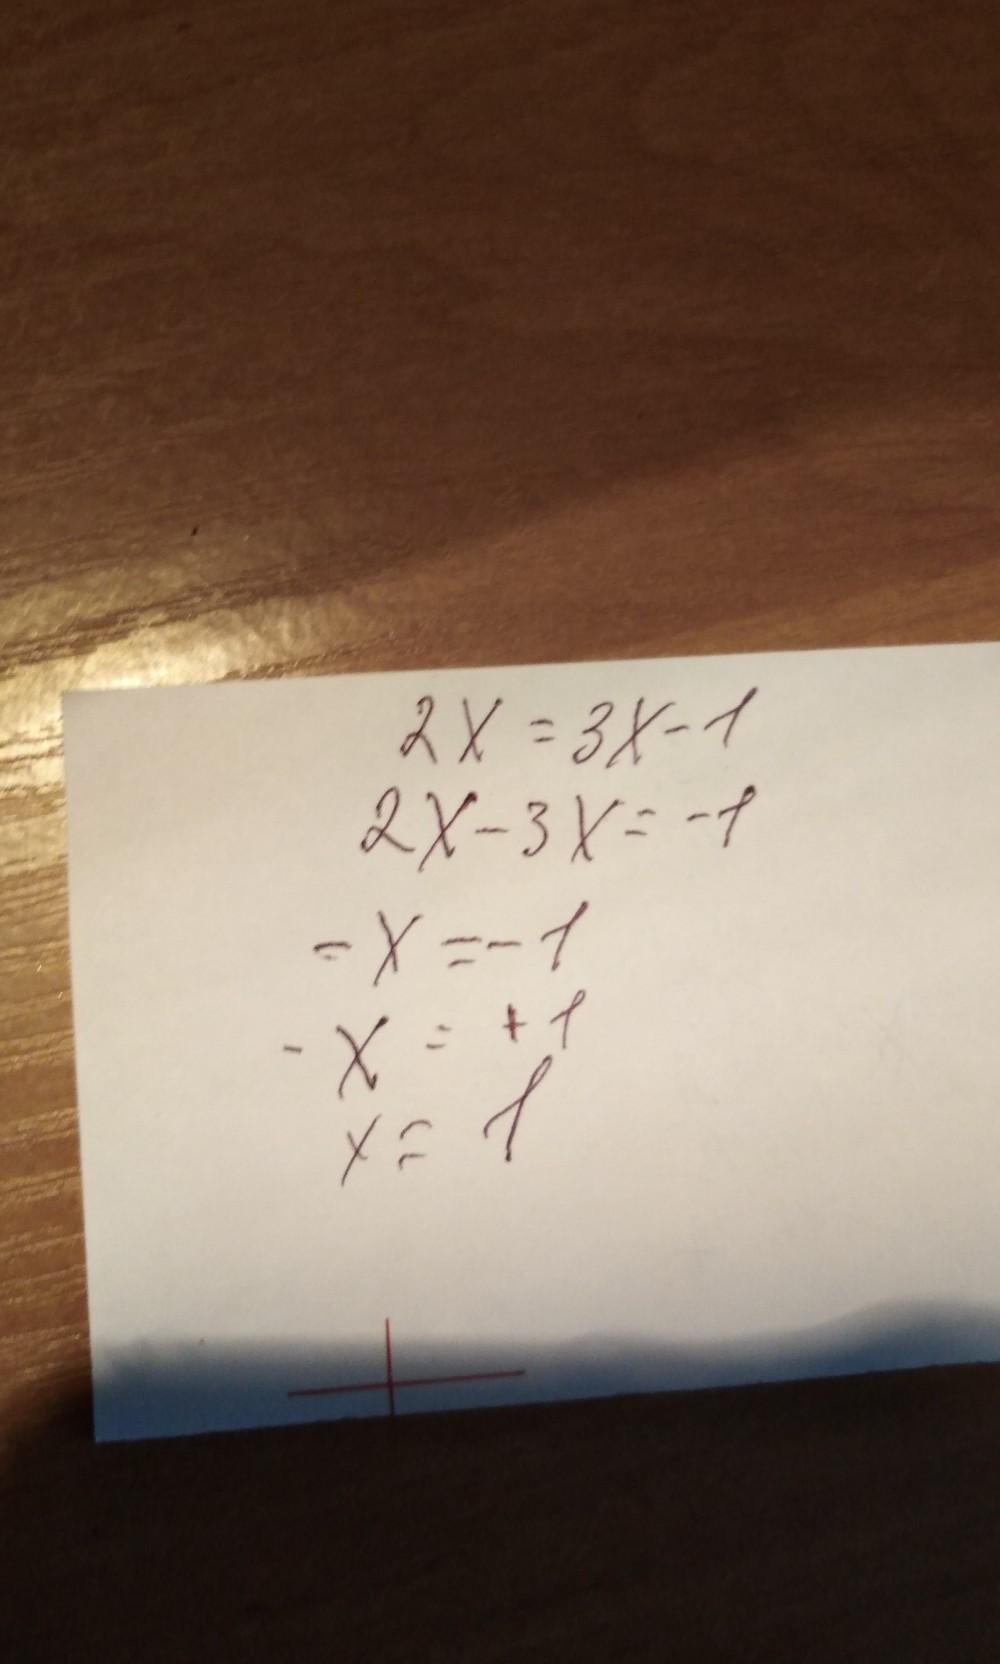 2x = 3x - 1
2x - 3x = -1
- x = - 1
- x = + 1
x = 1